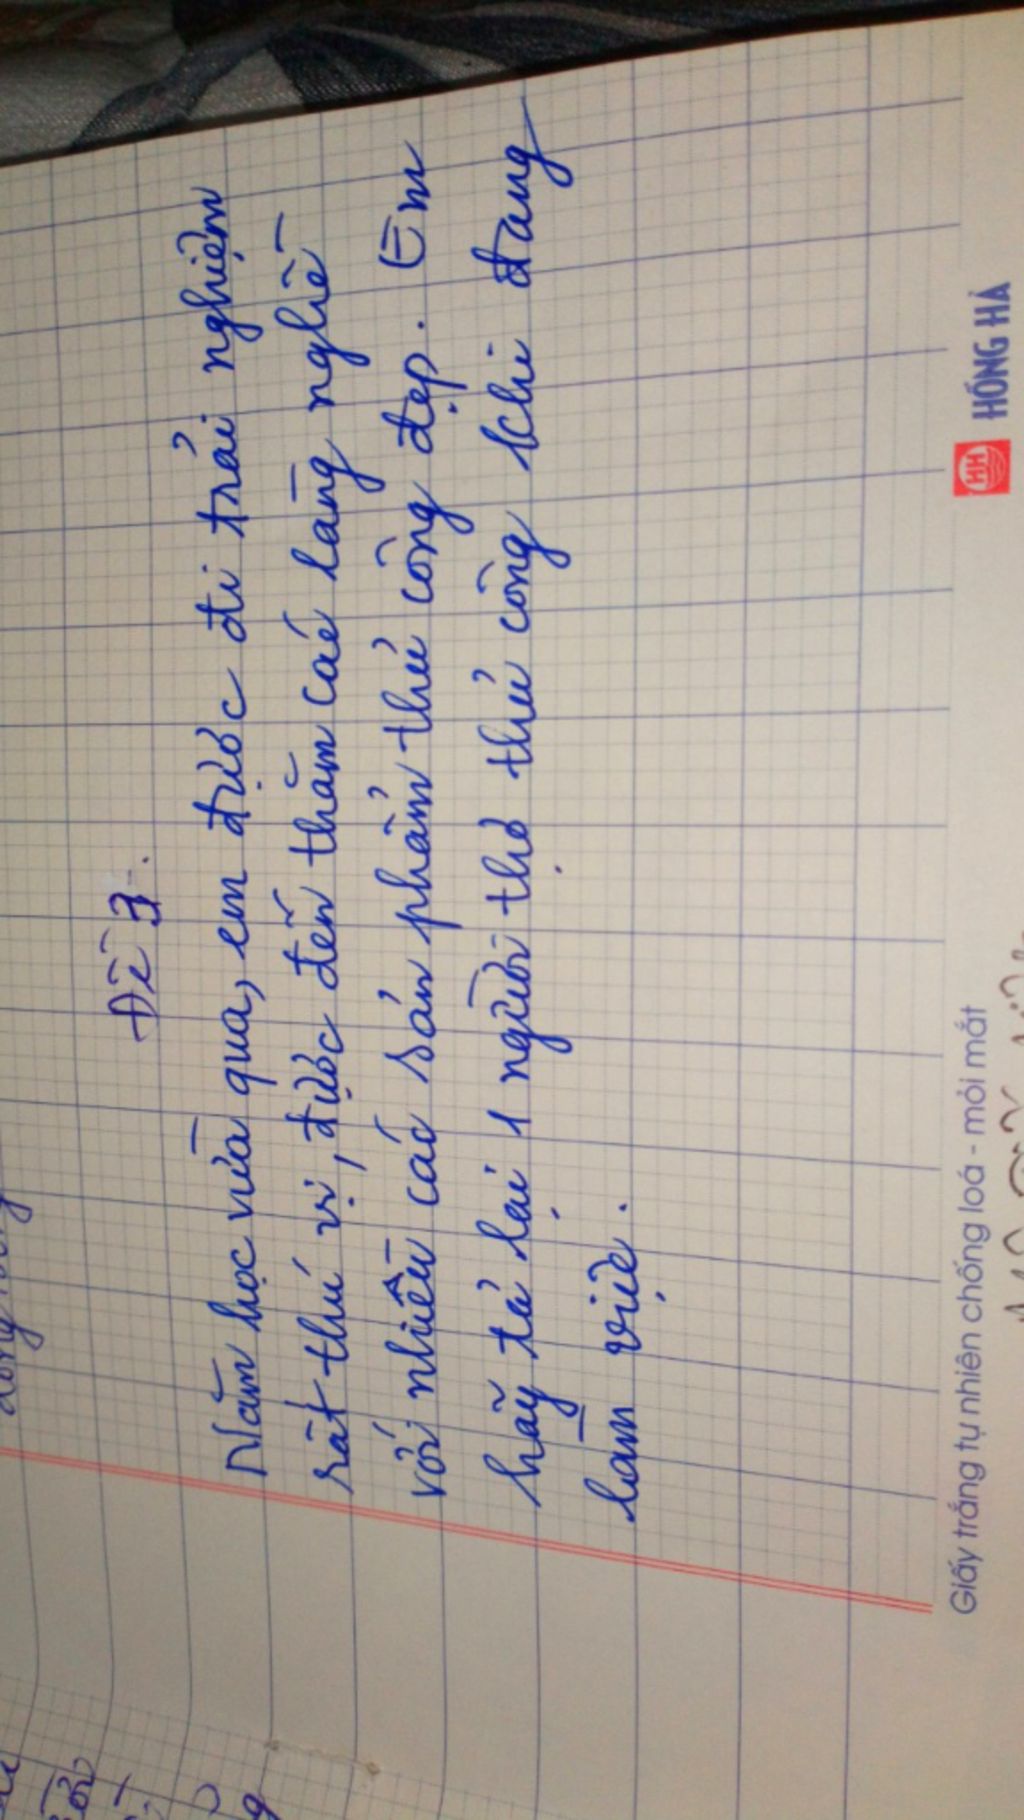 Đề 3.
Năm học vừa qua, em được đi trải nghiệm
rất thú vị, được đến thăm các làng nghề
với nhiều các sản phẩm thủ công đẹp. Em
hãy tả lại 1 người thợ thủ công khi đang
làm việc.
Giấy trắng tự nhiên chống loá - mỏi mắt
HH
HỒNG HÀ